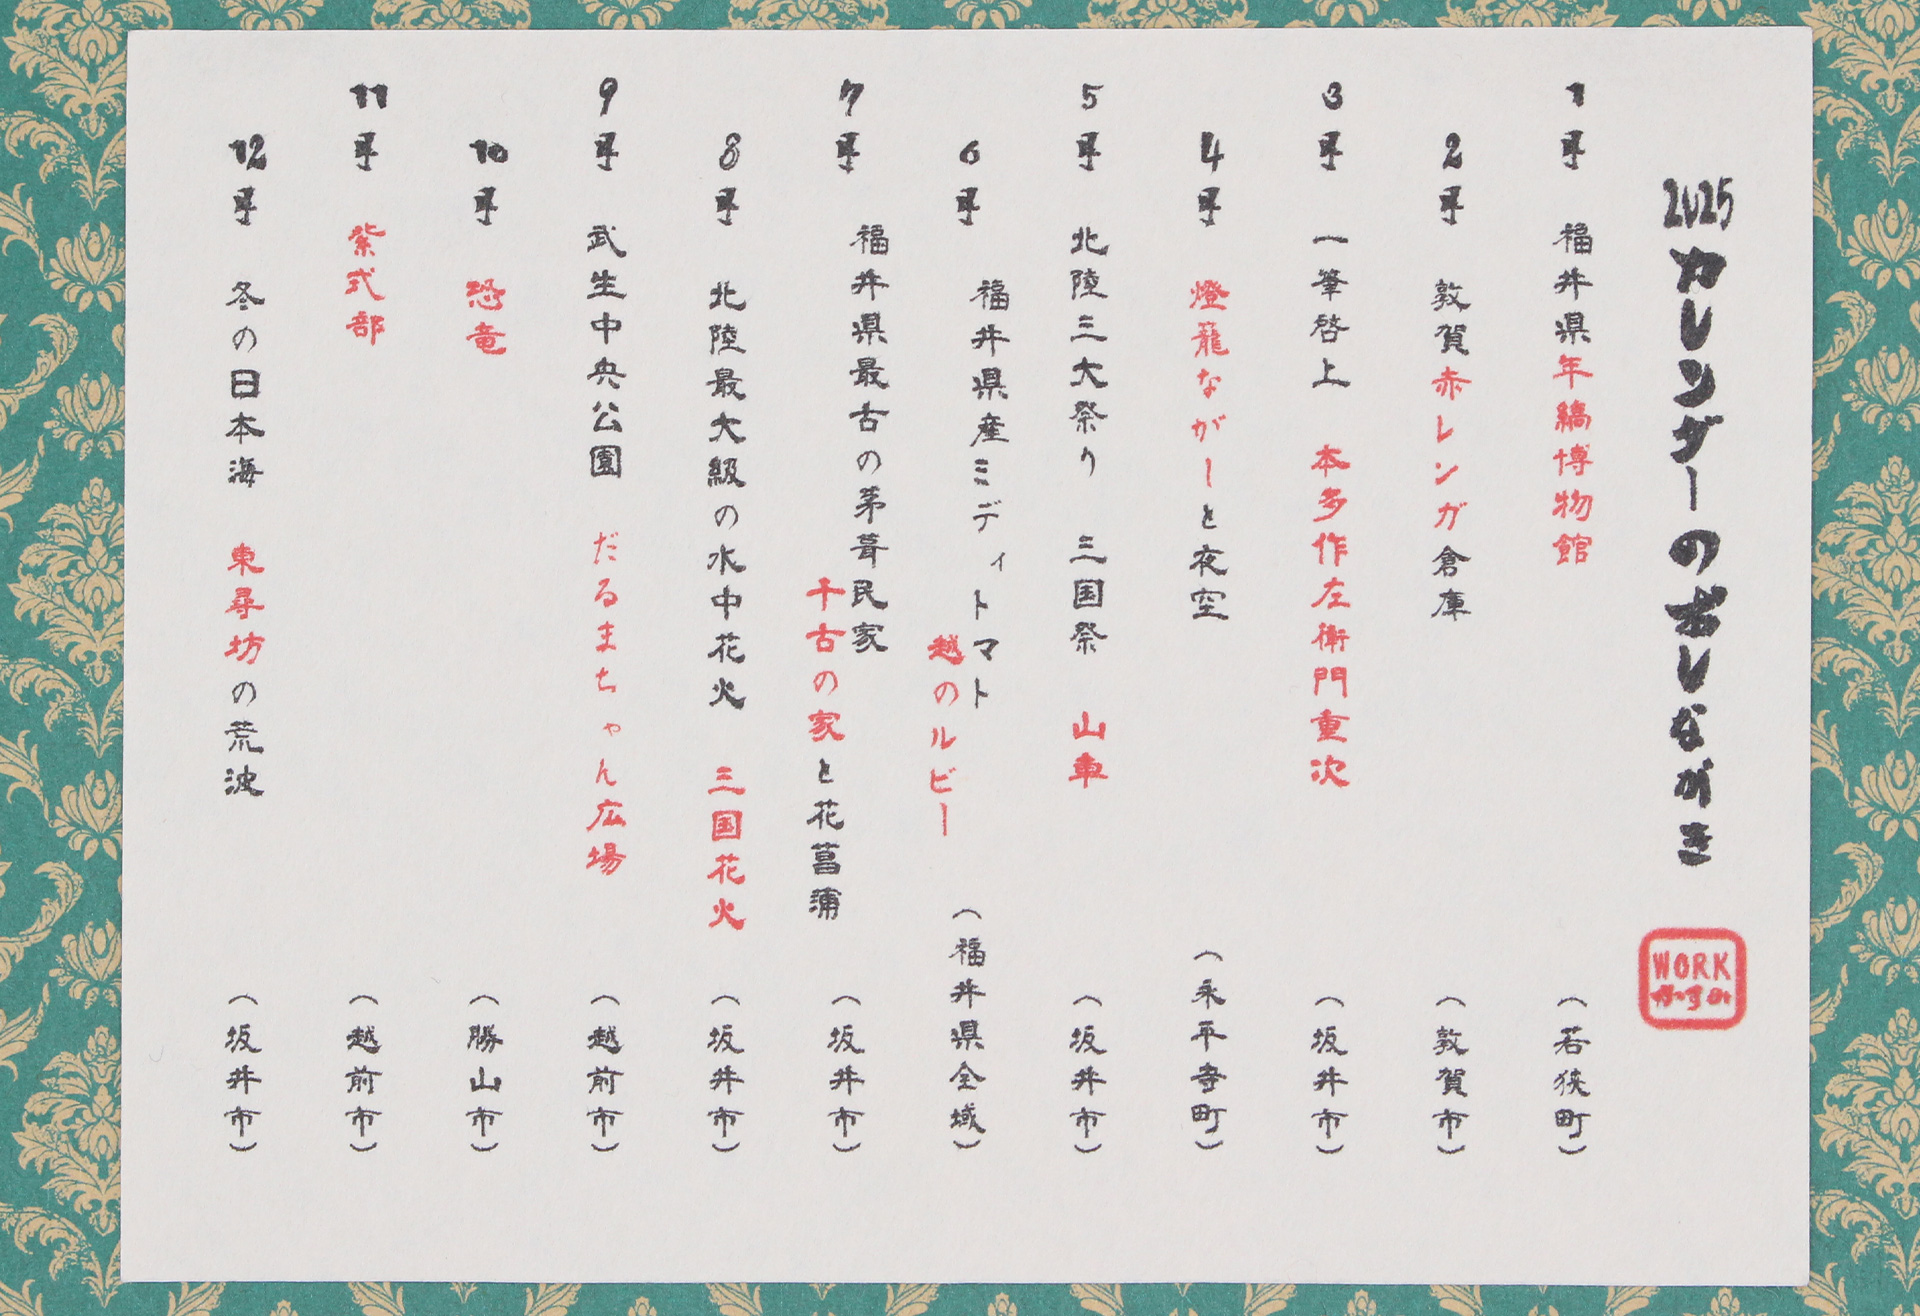 2025カレンダーのおしながき
WORK
かずみ
1月 福井県年縞博物館 (若狭町)
2月 敦賀赤レンガ倉庫 (敦賀市)
3月 一筆啓上 本多作左衛門重次 (坂井市)
4月 燈籠ながーと夜空 (永平寺町)
5月 北陸三大祭り 三国祭 山車 (坂井市)
6月 福井県産ミディトマト
越のルビー (福井県全域)
7月 福井県最古の茅葺民家
千古の家と花菖蒲 (坂井市)
8月 北陸最大級の水中花火 三国花火 (坂井市)
9月 武生中央公園 だるまちゃん広場 (越前市)
10月 恐竜 (勝山市)
11月 紫式部 (越前市)
12月 冬の日本海 東尋坊の荒波 (坂井市)